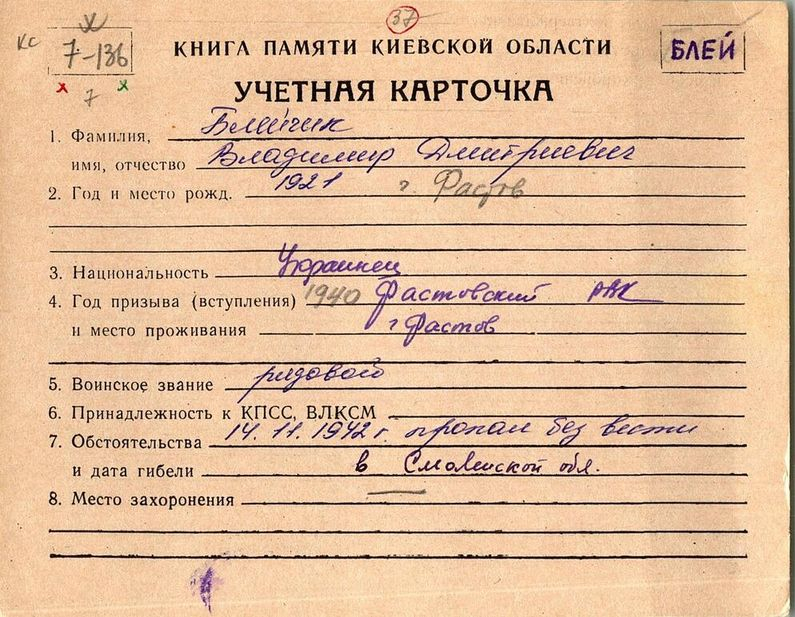 37
КС
7-136
КНИГА ПАМЯТИ КИЕВСКОЙ ОБЛАСТИ
БЛЕЙ
х х
7
УЧЕТНАЯ КАРТОЧКА
1. Фамилия, Блейчик
имя, отчество Владимир Дмитриевич
2. Год и место рожд. 1921 г. Фастов
3. Национальность Украинец
4. Год призыва (вступления) 1940 Фастовский РВК
и место проживания г Фастов
5. Воинское звание рядового
6. Принадлежность к КПСС, ВЛКСМ
7. Обстоятельства 14.11.1942 г. пропал без вести
и дата гибели в Смоленской обл.
8. Место захоронения —